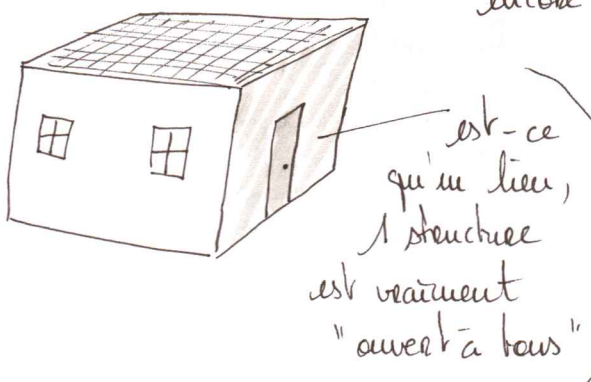 encore
est-ce
qu'un lieu,
1 structure
est vraiment
"ouvert à tous"